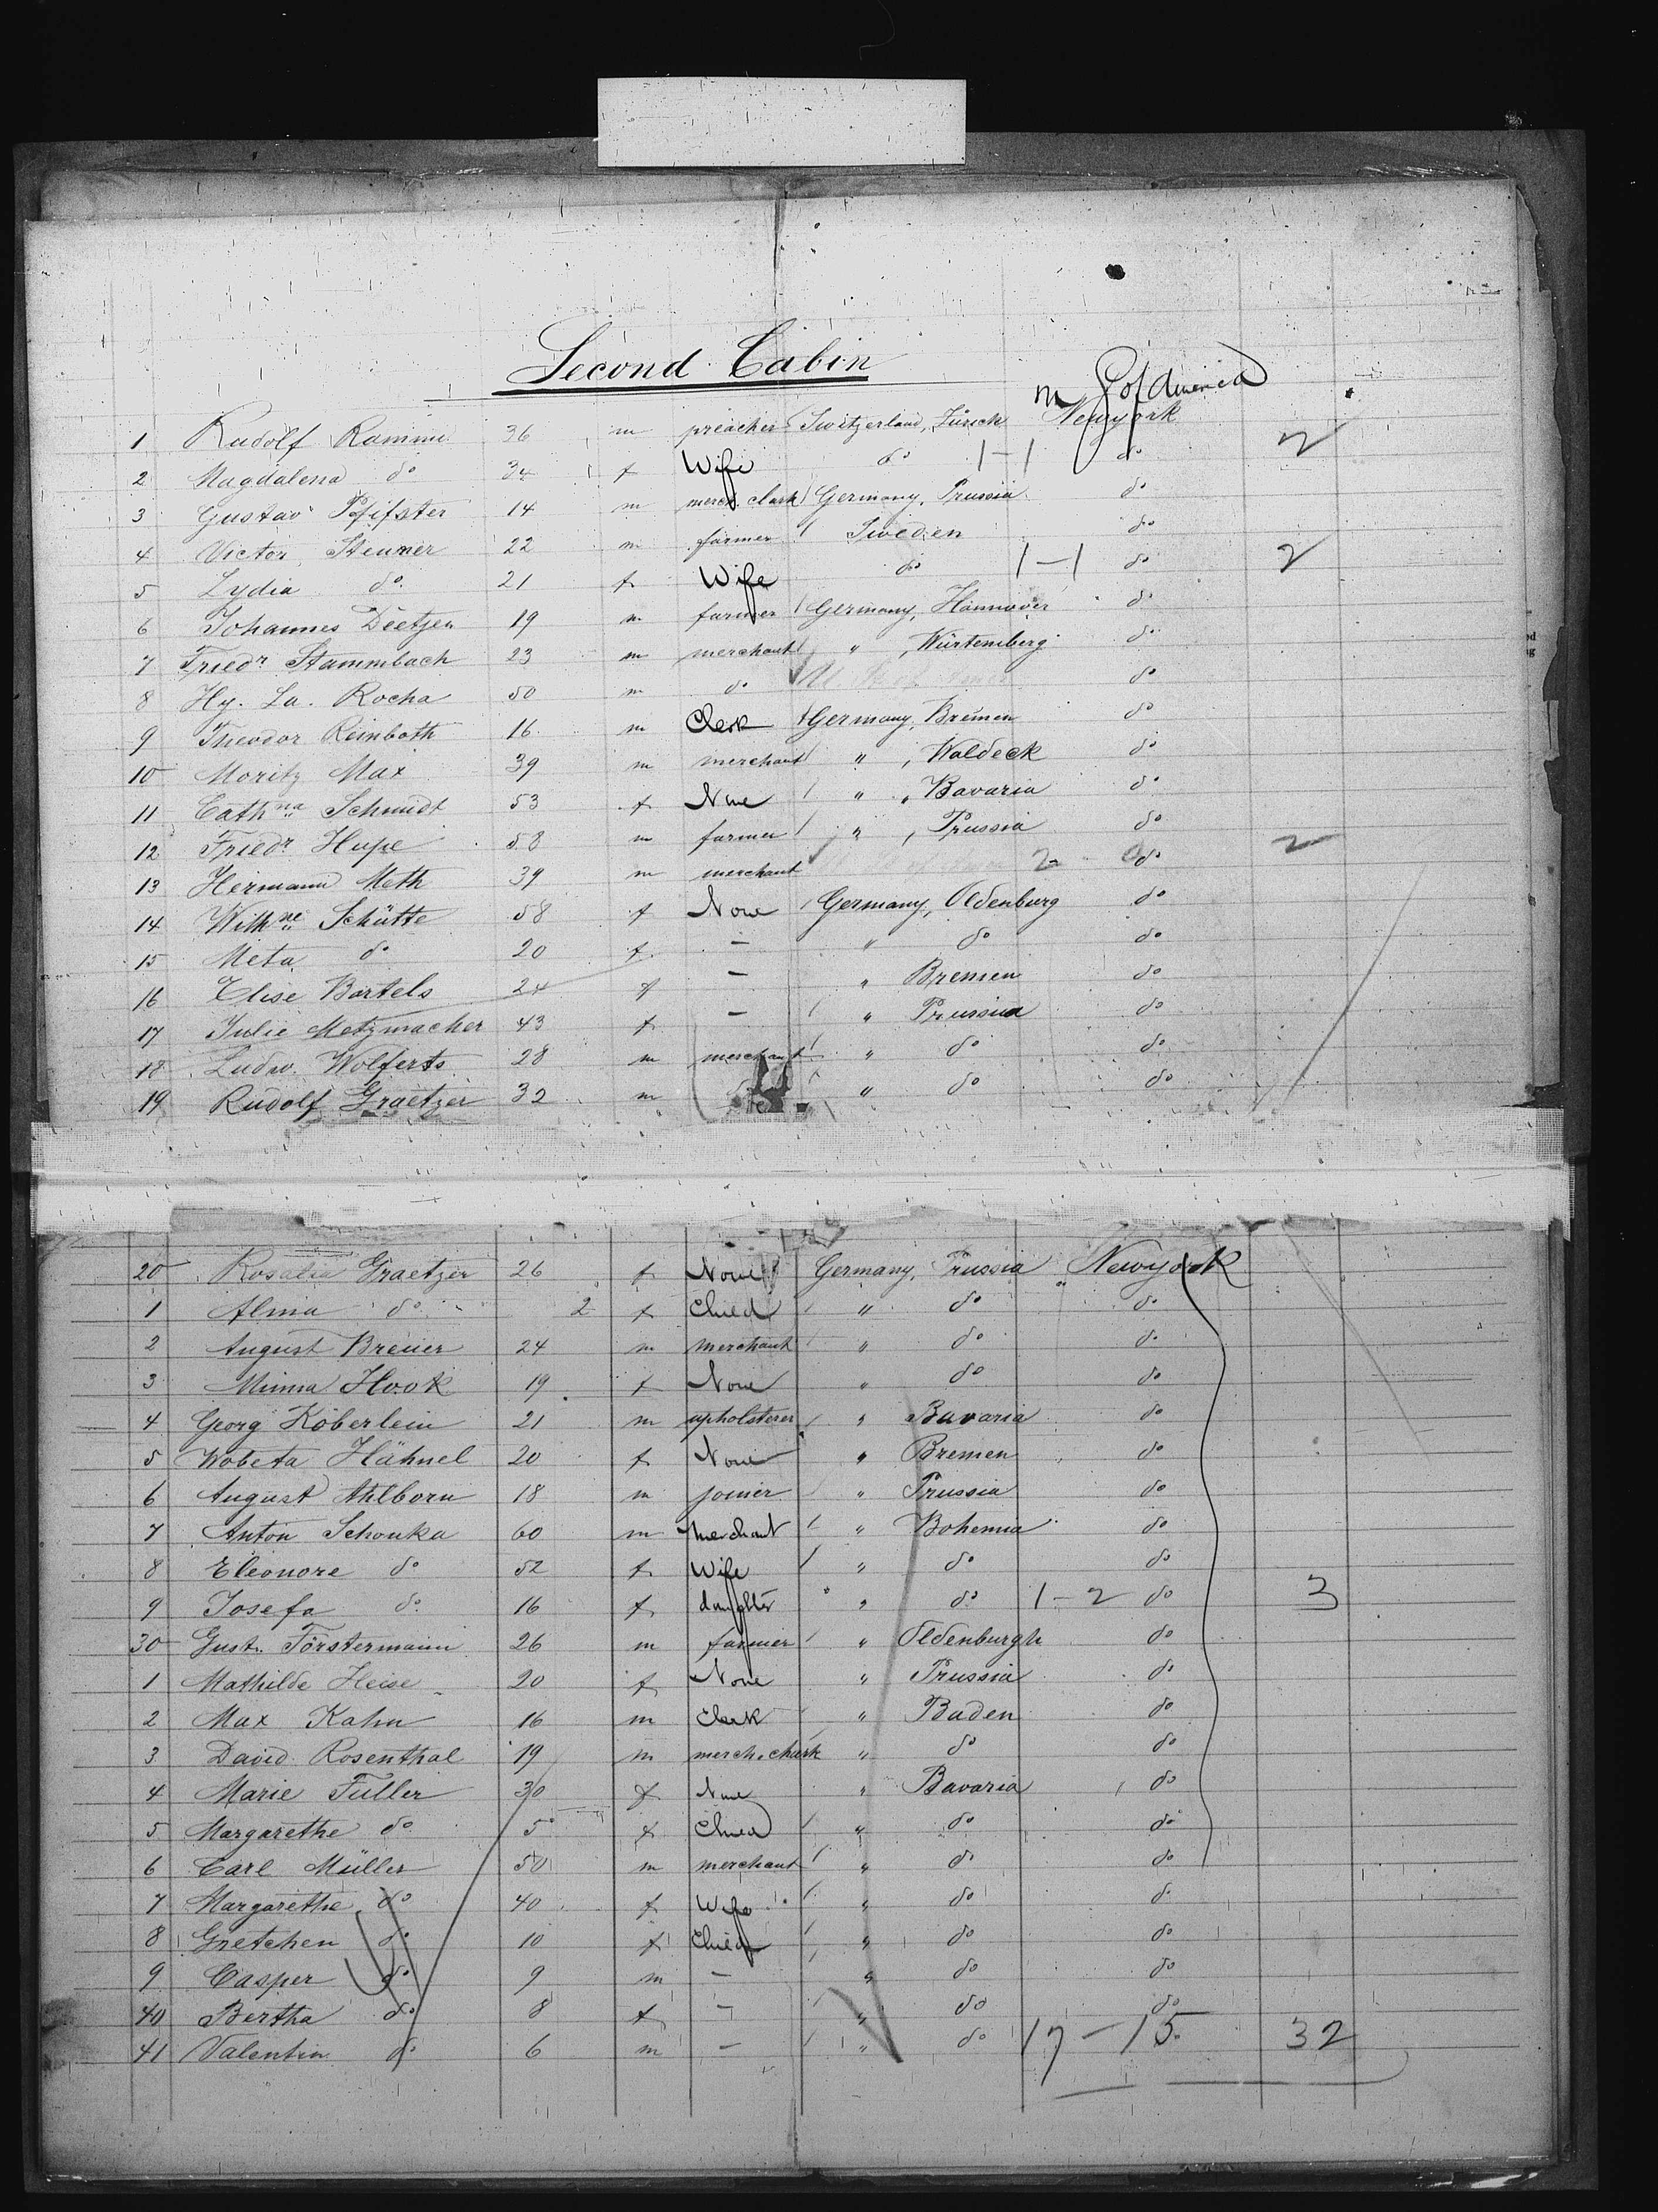 Second Cabin
M S of America
1 Rudolf Ramm 36 m preacher Switzerland, Zürich Newyork
2 Magdalena do 34 f Wife do 1-1 do 2
3 Gustav Pfifster 14 m merch. clark Germany, Prussia do
4 Victor Steuner 22 m farmer Sweden do
5 Lydia do 21 f Wife do 1-1 do 2
6 Johannes Dietjen 19 m farmer Germany, Hannover do
7 Friedr Stammbach 23 m merchant " , Würtemberg do
8 Hy. La. Rocha 50 m do do
9 Theodor Reinboth 16 m Clerk Germany, Bremen do
10 Moritz Max 39 m merchant " , Waldeck do
11 Cathna Schmidt 53 f None " , Bavaria do
12 Friedr Hupe 58 m farmer " , Prussia do
13 Hermann Meth 39 m merchant 2 do 2
14 Wilhne Schütte 58 f None Germany, Oldenburg do
15 Meta do 20 f - " do do
16 Elise Bartels 24 f - " Bremen do
17 Julie Metzmacher 43 f - " Prussia do
18 Ludw. Wolferts 28 m merchant " do do
19 Rudolf Graetzer 32 m " do do
20 Rosalia Graetzer 26 f None Germany, Prussia Newyork
1 Alma do 2 f Child " do do
2 August Breuer 24 m merchant " do do
3 Minna Hook 19 f None " do do
4 Georg Köberlein 21 m upholsterer " Bavaria do
5 Wobeta Hähnel 20 f None " Bremen do
6 August Ahlborn 18 m joiner " Prussia do
7 Anton Schouka 60 m merchant " Bohemia do
8 Eleonore do 52 f Wife " do do
9 Josefa do 16 f daughter " do 1-2 do 3
30 Gust. Förstermann 26 m farmer " Oldenburgh do
1 Mathilde Heise 20 f None " Prussia do
2 Max Kahn 16 m Clerk " Baden do
3 David Rosenthal 19 m merch. clark " do do
4 Marie Fuller 30 f None " Bavaria do
5 Margarethe do 5 f Child " do do
6 Carl Müller 50 m merchant " do do
7 Margarethe do 40 f Wife " do do
8 Gretchen do 10 f Child " do do
9 Casper do 9 m - " do do
40 Bertha do 8 f - " do do
41 Valentin do 6 m - " do 17-15 32